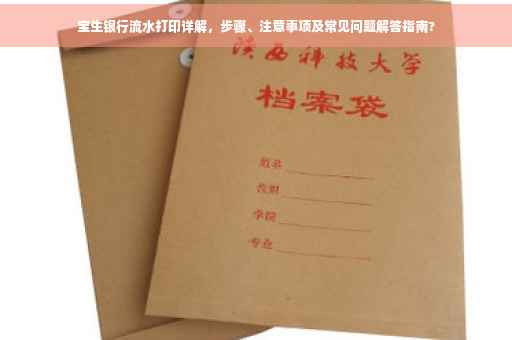 宝生银行流水打印详解，步骤、注意事项及常见问题解答指南?
陕西科技大学
档案袋
姓名
学院
专业